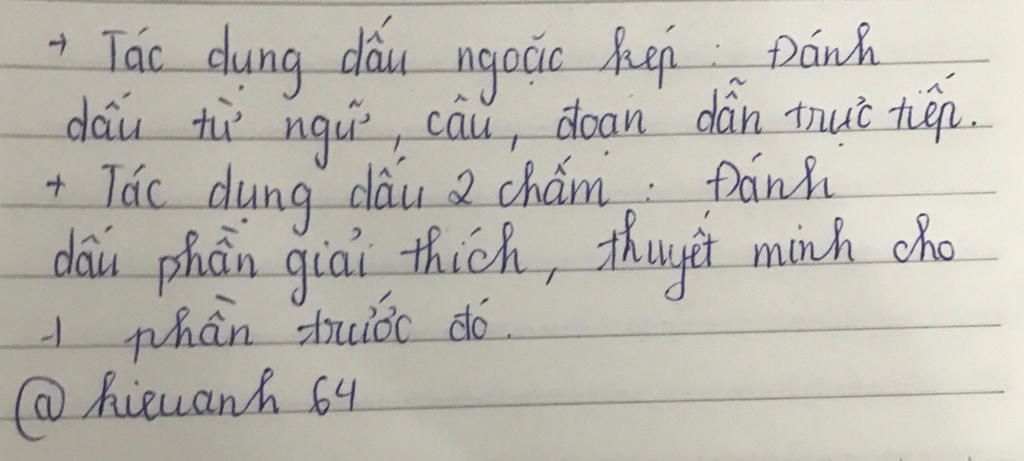 + Tác dụng dấu ngoặc kép : Đánh
dấu từ ngữ, câu, đoạn dẫn trực tiếp.
+ Tác dụng dấu 2 chấm : Đánh
dấu phần giải thích, thuyết minh cho
1 phần trước đó.
@ hieuanh 64